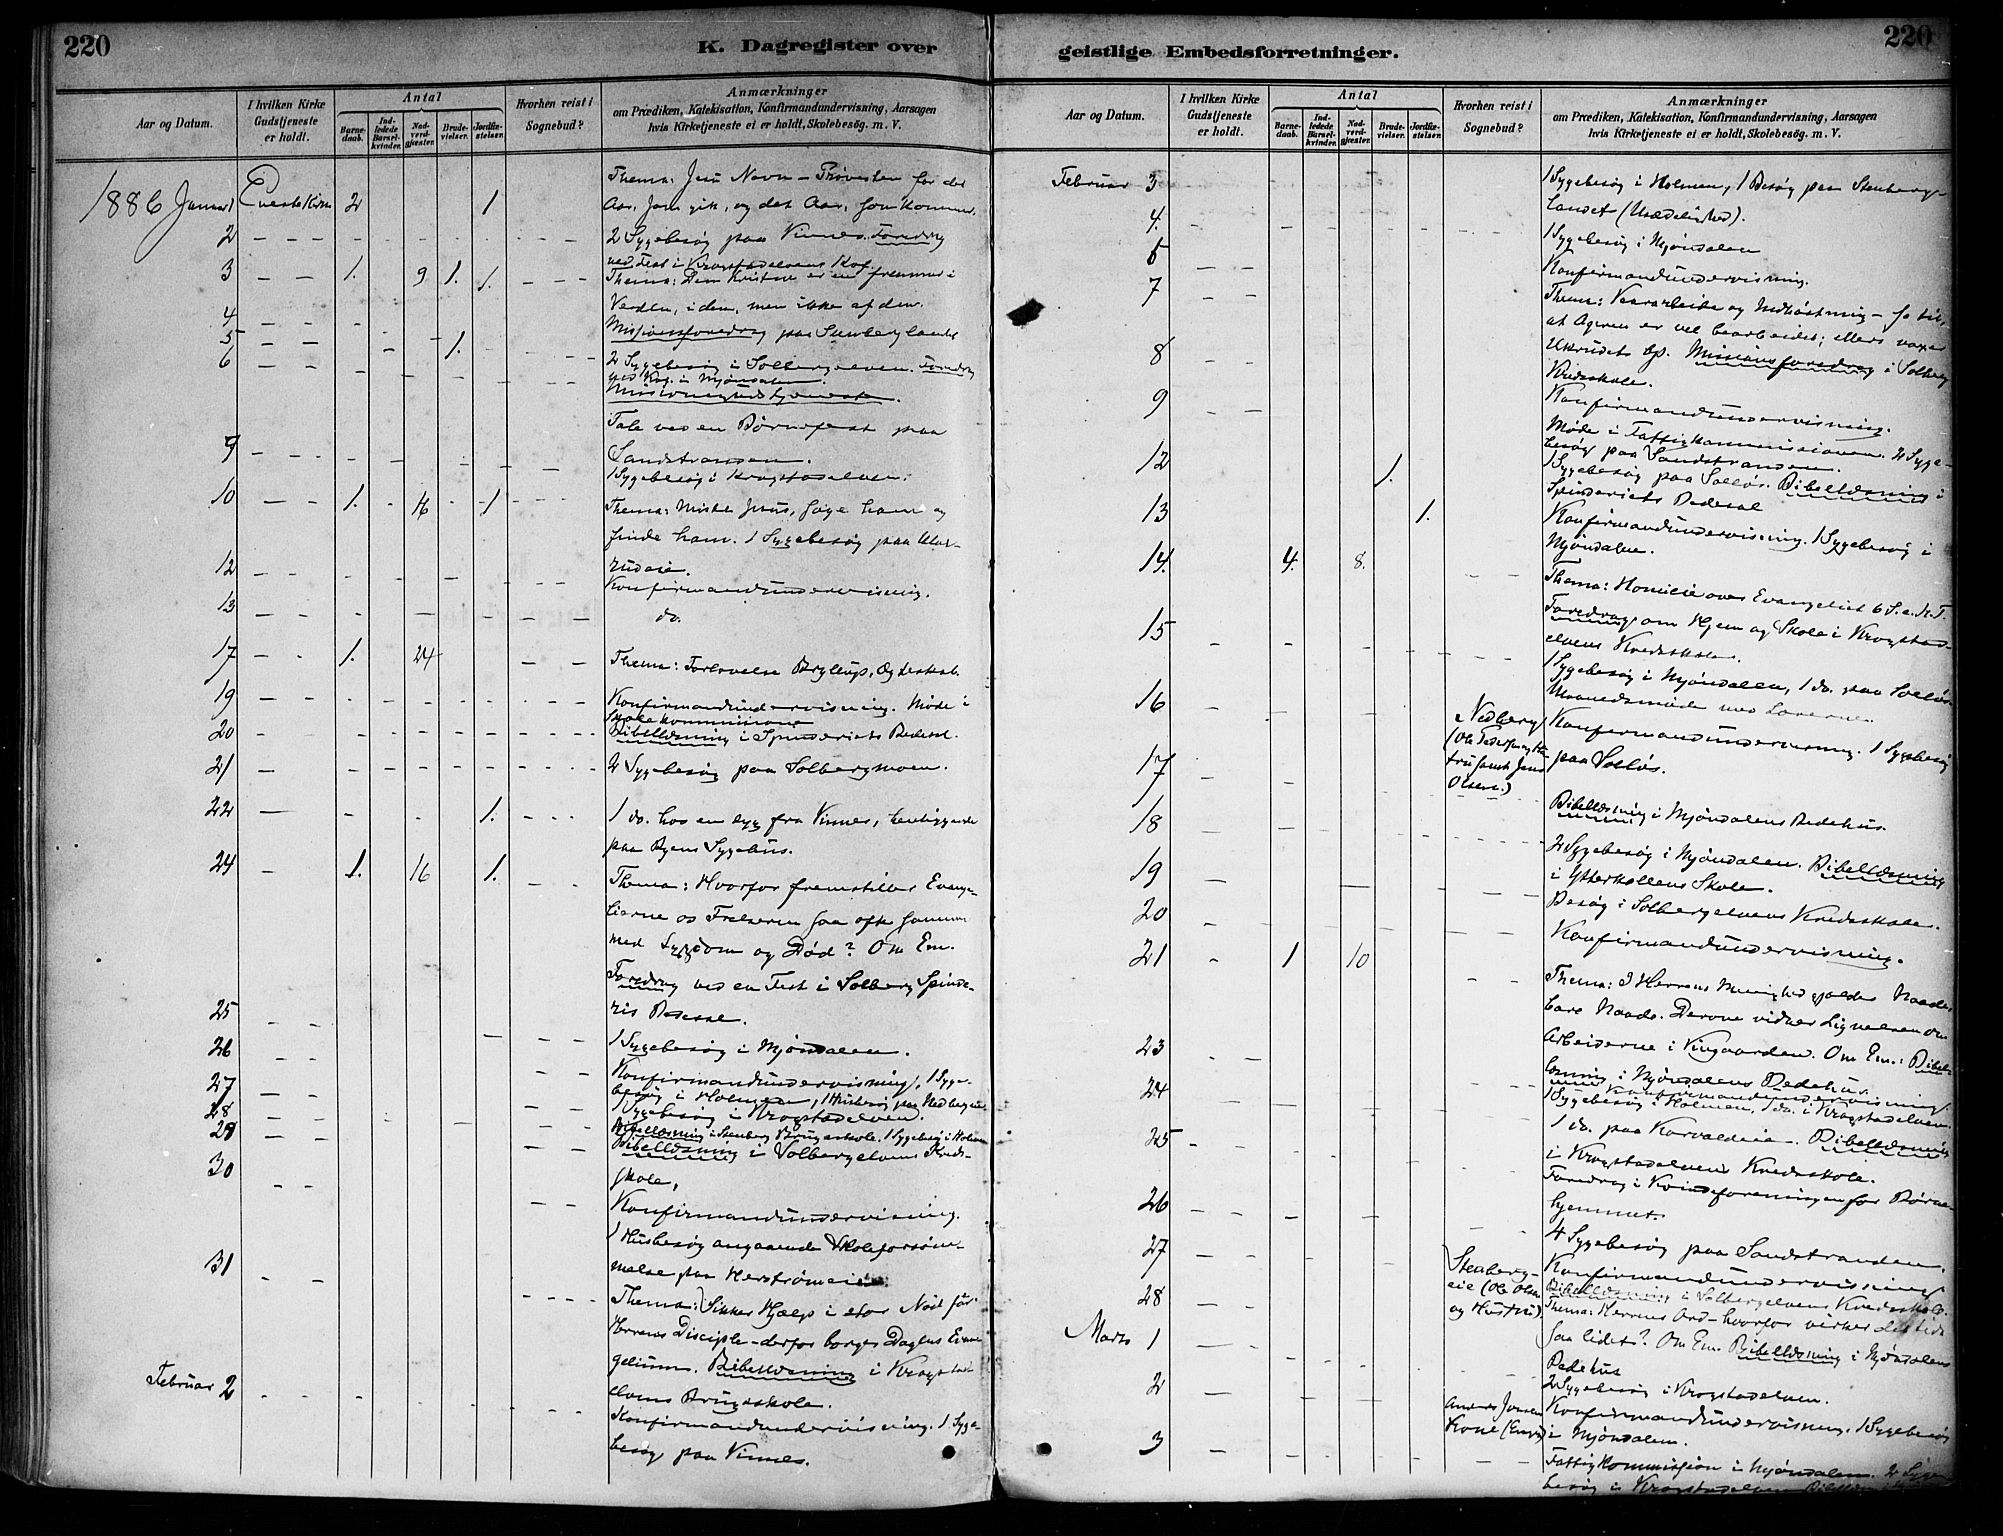 220
K. Dagregister over
Aar og Datum.
I hvilken Kirke Gudstjeneste er holdt.
Antal
Barnedaab.
Indledede Barselkvinder.
Nadverdgjæster.
Brudevielser.
Jordfæstelser.
Hvorhen reist i Sognebud?
Anmærkninger
om Prædiken, Katekisation, Konfirmandundervisning, Aarsagen
hvis Kirketjeneste ei er holdt, Skolebesög. m. V.
1886 Januar 1 2 1 Thema: Jesu Navn – Prøvesten for det
Aar, som gik, og det Aar, som kommer.
2 2 Sygebesøg paa Vinnes. Foredrag
ved Fest i Krogstadelvens
3 1. 9 1. 1. Thema: De Kristne er en fremmed i
Verden, i den, men ikke af den.
4 Missionsforedrag paa Stenberglandet
5 1.
6 2 Sygebesøg i Solbergelven. Foredrag
i Mjøndalen.
Missionsgudstjeneste.
Tale ved en Børnefest paa
9 Sandstranden.
1 Sygebesøg i Krogstadelven.
10 1. 16 1 Thema: Miste Jesus, søge ham og
finde ham. 1 Sygebesøg paa
12 Konfirmandundervisning.
13 do.
17 1. 24 Thema: Forlovelse Bryllup, Ægteskab.
19 Konfirmandundervisning. Møde i
Skolekommissionen
20 Bibellæsning i Spinderiets Bedesal.
21 2 Sygebesøg paa Solbergmoen.
22 1. 1 do. hos en syg fra Vinnes, henliggende
paa Byens Sygehus.
24 1. 16 1. Thema: Hvorfor fremstiller Evange-
lierne os Frelseren saa ofte sammen
med Sygdom og Død? Om Em.
Foredrag ved en Fest i Solberg Spinde-
ris Bedesal.
25 1 Sygebesøg i Mjøndalen.
26 Konfirmandundervisning, 1 Syge-
27 besøg i Holmen, 1 Husbesøg paa Nedbergeie.
28 1 Sygebesøg i Krogstadelven.
29 Bibellæsning i Stenberg Brugsskole. 1 Sygebesøg i Holmen
Bibellæsning i Solbergelvens Kreds-
30 skole,
Konfirmandundervisning.
1 Husbesøg angaaende Skoleforsøm-
31 melse paa Herstrømeie
Thema: Sikker Hjælp i stor Nød før
Herrens Disciple – derfor borger Dagens Evan-
gelium. Bibellæsning i Krogstad-
Februar 2 elvens Brugsskole.
Konfirmandundervisning. 1 Syge-
besøg paa Vinnes.
220
geistlige Embedsforretninger.
Aar og Datum.
I hvilken Kirke Gudstjeneste er holdt.
Antal
Barnedaab.
Indledede Barselkvinder.
Nadverdgjæster.
Brudevielser.
Jordfæstelser.
Hvorhen reist i Sognebud?
Anmærkninger
om Prædiken, Katekisation, Konfirmandundervisning, Aarsagen
hvis Kirketjeneste ei er holdt, Skolebesög. m. V.
Februar 3 1 Sygebesøg i Holmen, 1 Besøg paa Stenberg-
landet (Usædelighed).
4. 1 Sygebesøg i Mjøndalen
5 Konfirmandundervisning.
7 Thema: Vaararbeide og Indhøstning – se til,
at Ageren er vel bearbeidet; ellers voxer
8 Ukrudtet op. Missionsforedrag i Solberg
Kredsskole.
9 Konfirmandundervisning.
Møde i Fattigkommissionen. 2 Syge-
besøg paa Sandstranden.
12 1. 1 Sygebesøg paa Solløs. Bibellæsning i
Spinderiets Bedesal
13 1. Konfirmandundervisning. 1 Sygebesøg i
Mjøndalen.
14. 4. 8. Thema: Homilie over Evangeliet 6 S. e. H. 3 K.
15 Foredrag om Hjem og Skole i Krogstad-
elvens Kredsskole.
1 Sygebesøg i Mjøndalen, 1 do. paa Solløs
16 Maanedsmøde med Lærerne.
Nedberg
Konfirmandundervisning. 1 Sygebesøg
17 Olsen.) paa Solløs.
18 Bibellæsning i Mjøndalens Bedehus.
2 Sygebesøg i Mjøndalen. Bibellæsning
19 i Ytterkollens Skole.
20 Besøg i Solbergelvens Kredsskole.
Konfirmandundervisning.
21 1 10
Thema: I Herrens Menighed gjælder Naade,
bare Naade. Derom vidner Lignelsen om
23 Arbeiderne i Vingaarden. Om Em.: Bibel-
læsning i Mjøndalens Bedehus.
24 Konfirmandundervisning.
1 Sygebesøg i Holmen, 1 do. i Krogstadelven.
25 1 do. paa Bibellæsning
i Krogstadelvens Kredsskole.
26 Foredrag i Kvindeforeningen for Børne-
hjemmet.
27 4 Sygebesøg paa Sandstranden.
Stenberg-
eie (Ole Olsen
og Hustru). Konfirmandundervisning
28 Bibellæsning i Solbergelvens Kredsskole.
Thema: Herrens Ord – hvorfor virker det tidt
Marts 1 saa lidet? Om Em. Bibellæsning i Mjøndalens
Bedehus
2 2 Sygebesøg i Krogstadelven.
Anders Jensens
Kone Konfirmandundervisning. 1 Sygebesøg
3 i Mjøndalen.
Fattigkommission i Mjøndalen. 2 Syge-
besøg i Krogstadelven